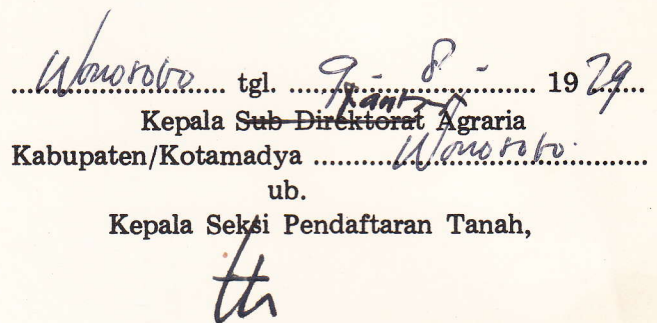 Wonosobo tgl. 9 - 8 - 1979
Kantor
Kepala Sub Direktorat Agraria
Kabupaten/Kotamadya Wonosobo.
ub.
Kepala Seksi Pendaftaran Tanah,